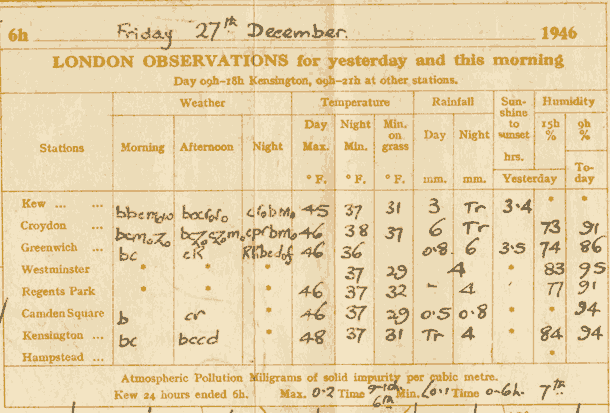 6h Friday 27th December. 1946
LONDON OBSERVATIONS for yesterday and this morning
Day 09h-18h Kensington, 09h-21h at other stations.
Stations Weather Temperature Rainfall Sunshine to sunset Humidity
Morning Afternoon Night Day Max. Night Min. Min. on grass Day Night hrs. 15h % 9h %
° F. ° F. ° F. mm. mm. Yesterday To-day
Kew ... ... 45 37 31 3 Tr 3.4 • •
Croydon ... 46 38 37 6 Tr 73 91
Greenwich ... bc cR 46 36 0.8 6 3.5 74 86
Westminster • • • 37 29 4 • 83 95
Regents Park • • • 46 37 32 - 4 77 91
Camden Square b cr 46 37 29 0.5 0.8 • • 94
Kensington ... bc bccd 48 37 31 Tr 4 • 84 94
Hampstead ... •
Atmospheric Pollution Miligrams of solid impurity per cubic metre.
Kew 24 hours ended 6h. Max. 0.2 Time 9-10h. 6th Min. <0.1 Time 0-6h. 7th